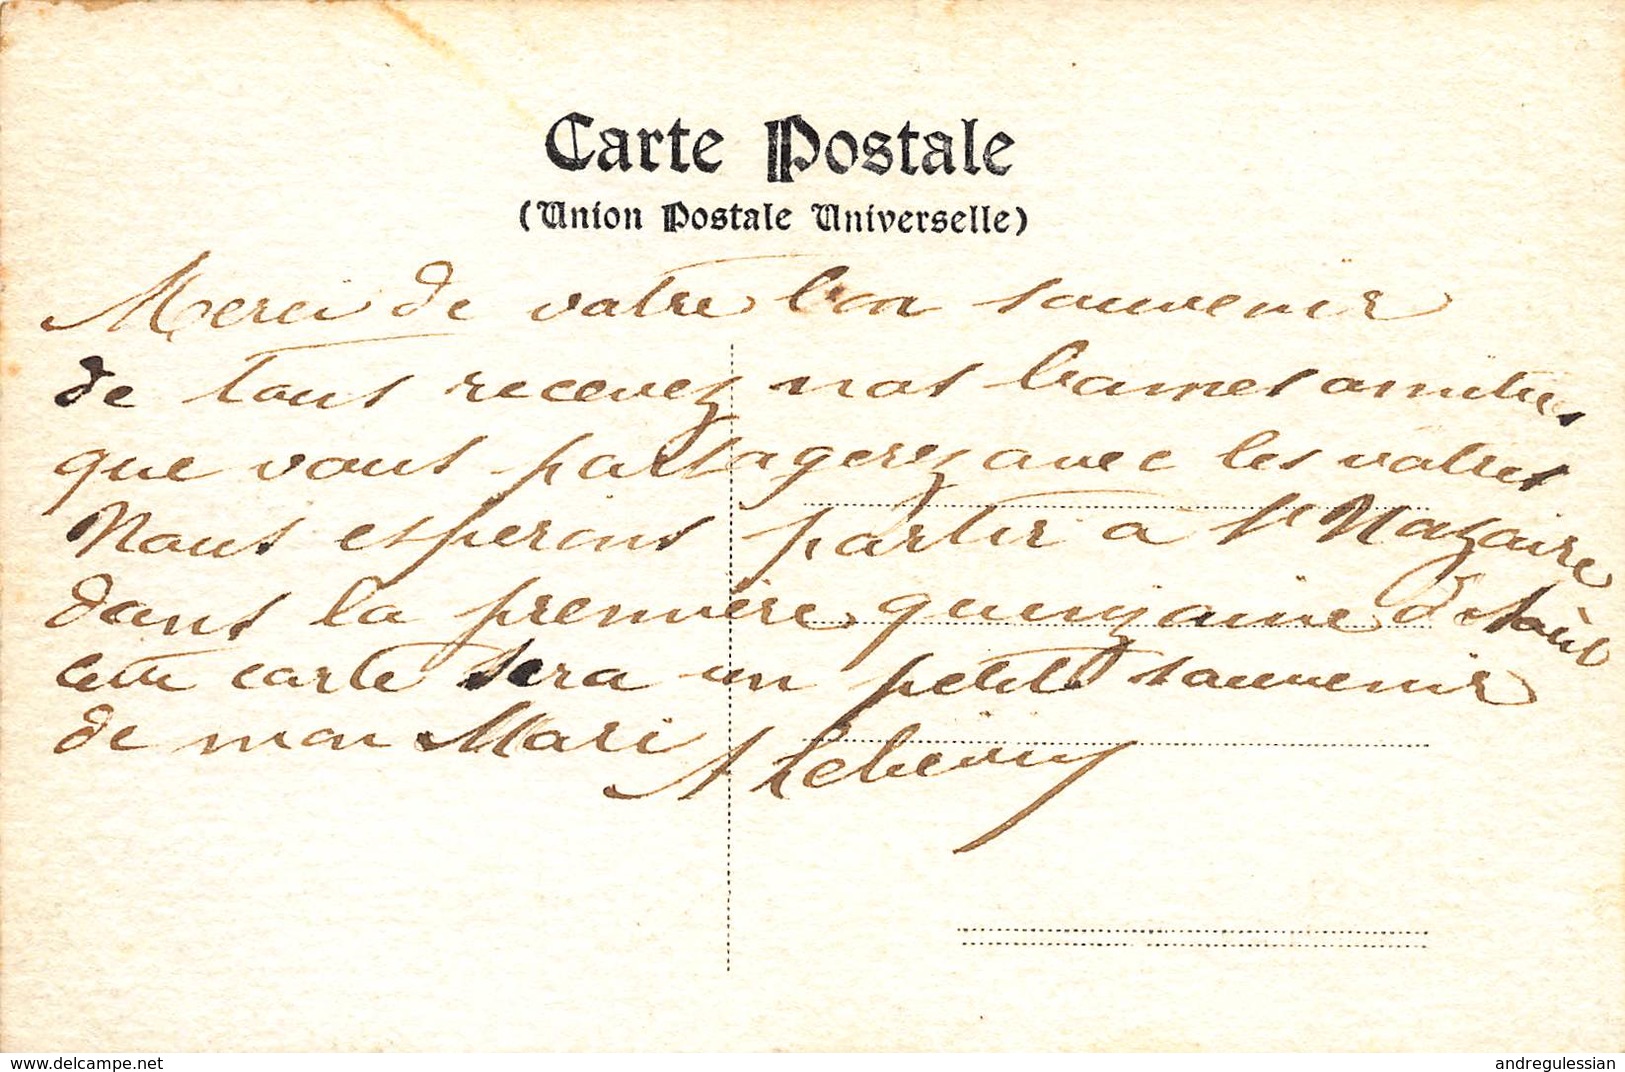 Carte Postale
(Union Postale Universelle)
Merci de votre bon souvenir
de tous recevez nos bonnes amitiés
que vous partagerez avec les votres
Nous esperons partir à St Nazaire
dans la première quinzaine d'Août
cette carte sera un petit souvenir
de mon Mari A
delcampe.net
andregulessian